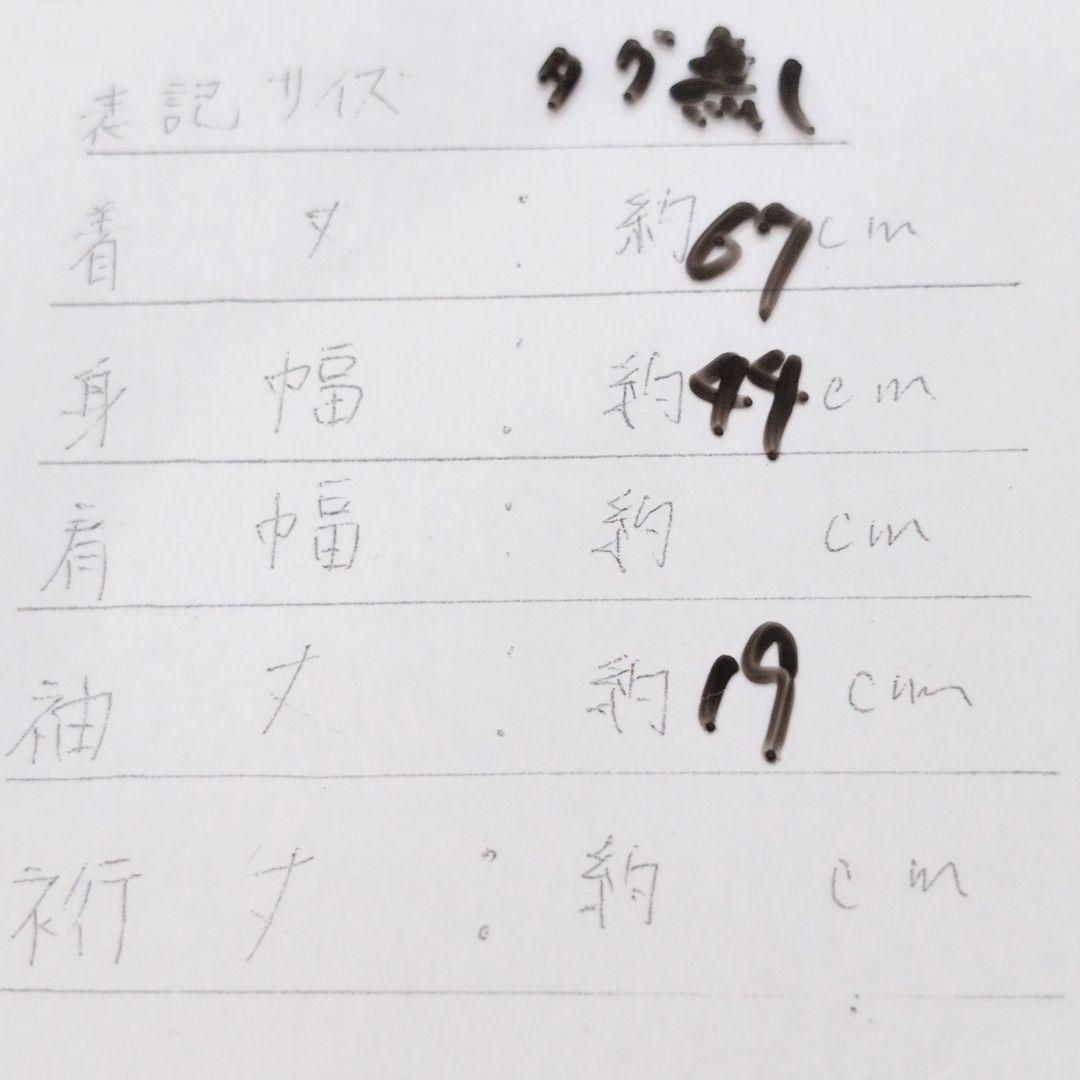 表記サイズ タグ無し
着丈:約67cm
身幅:約44cm
肩幅:約 cm
袖丈:約19cm
裄丈:約 cm